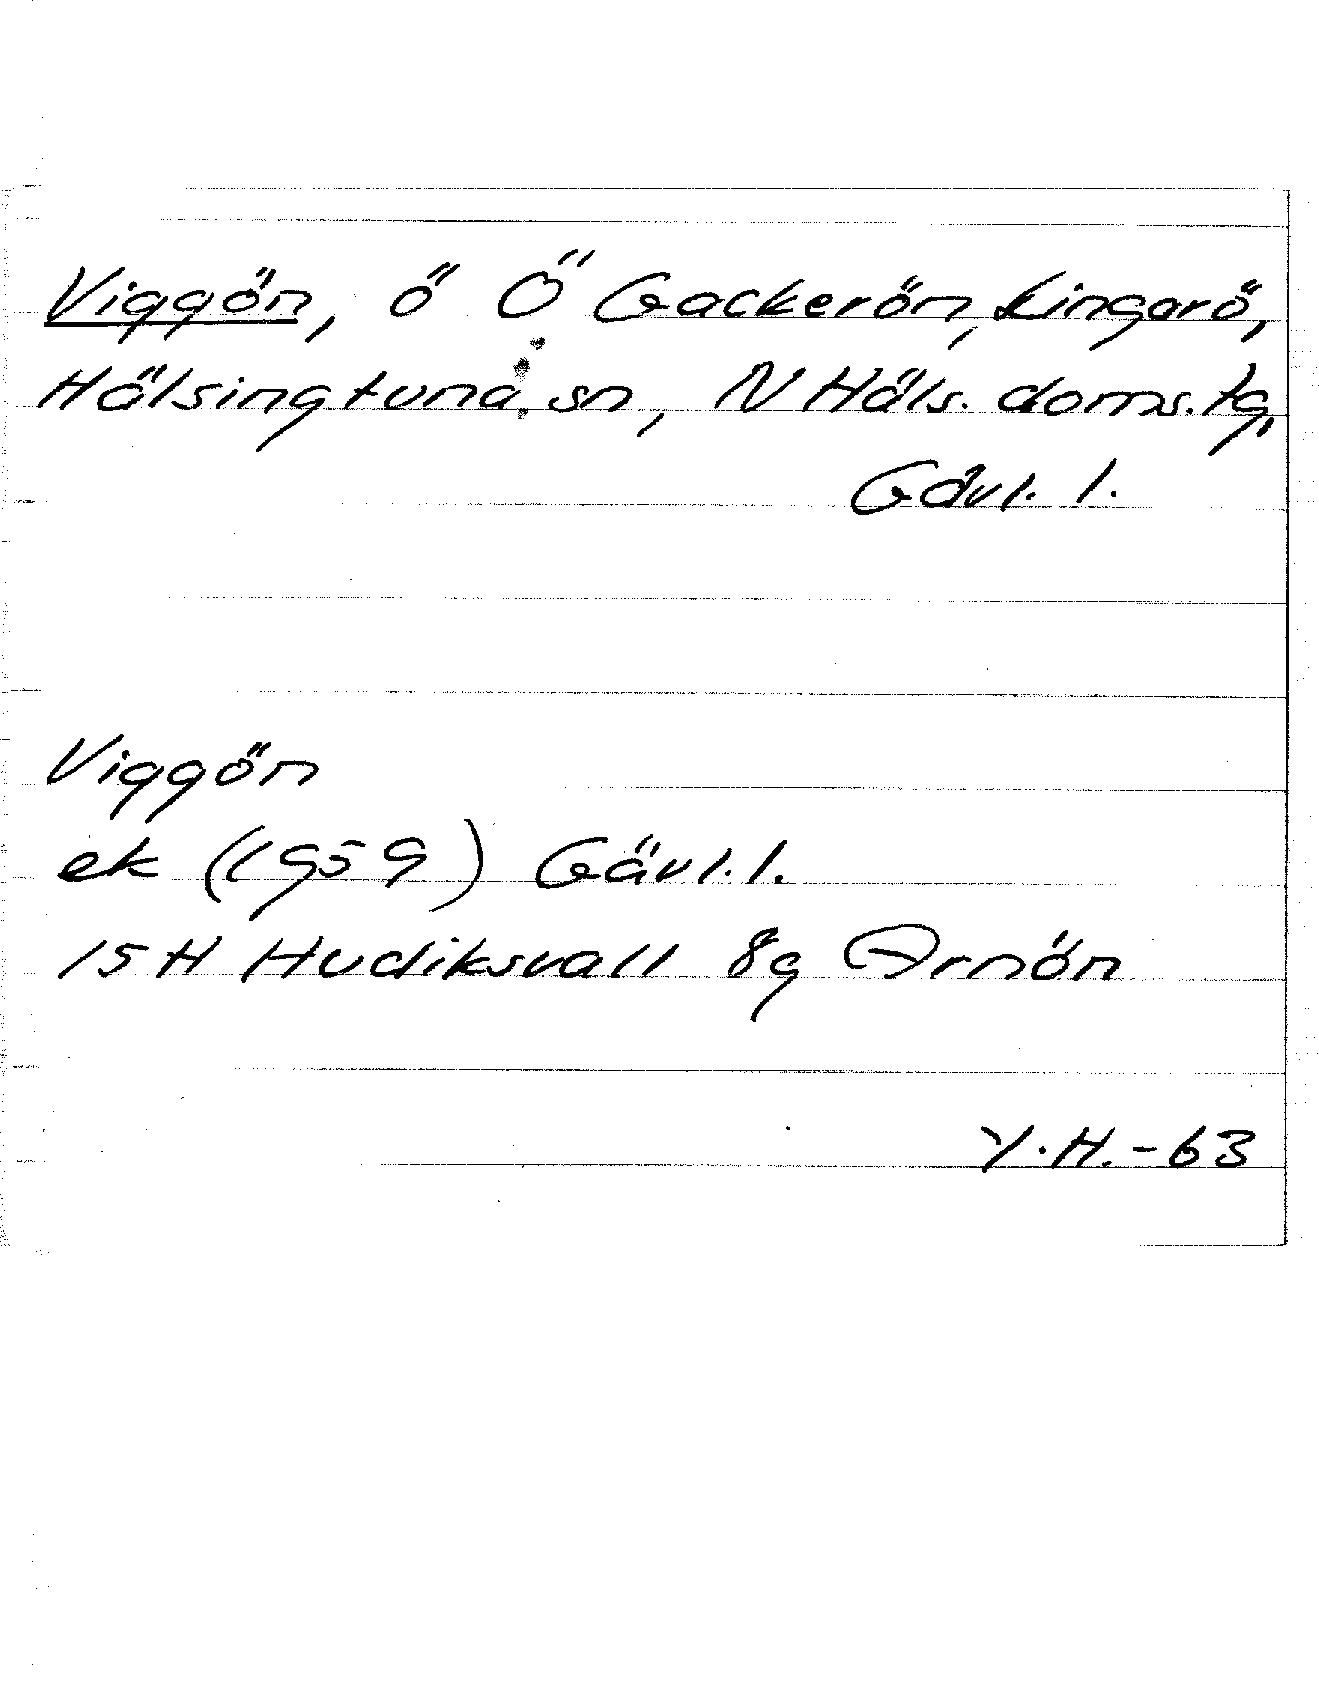 Viggön, ö Ö Gackerön, Lingarö,
Hälsingtuna sn, N Häls. doms. tg,
Gävl. l.
Viggön
ek (1959) Gävl. l.
15H Hudiksvall 8g Arnön
Y.H.-63